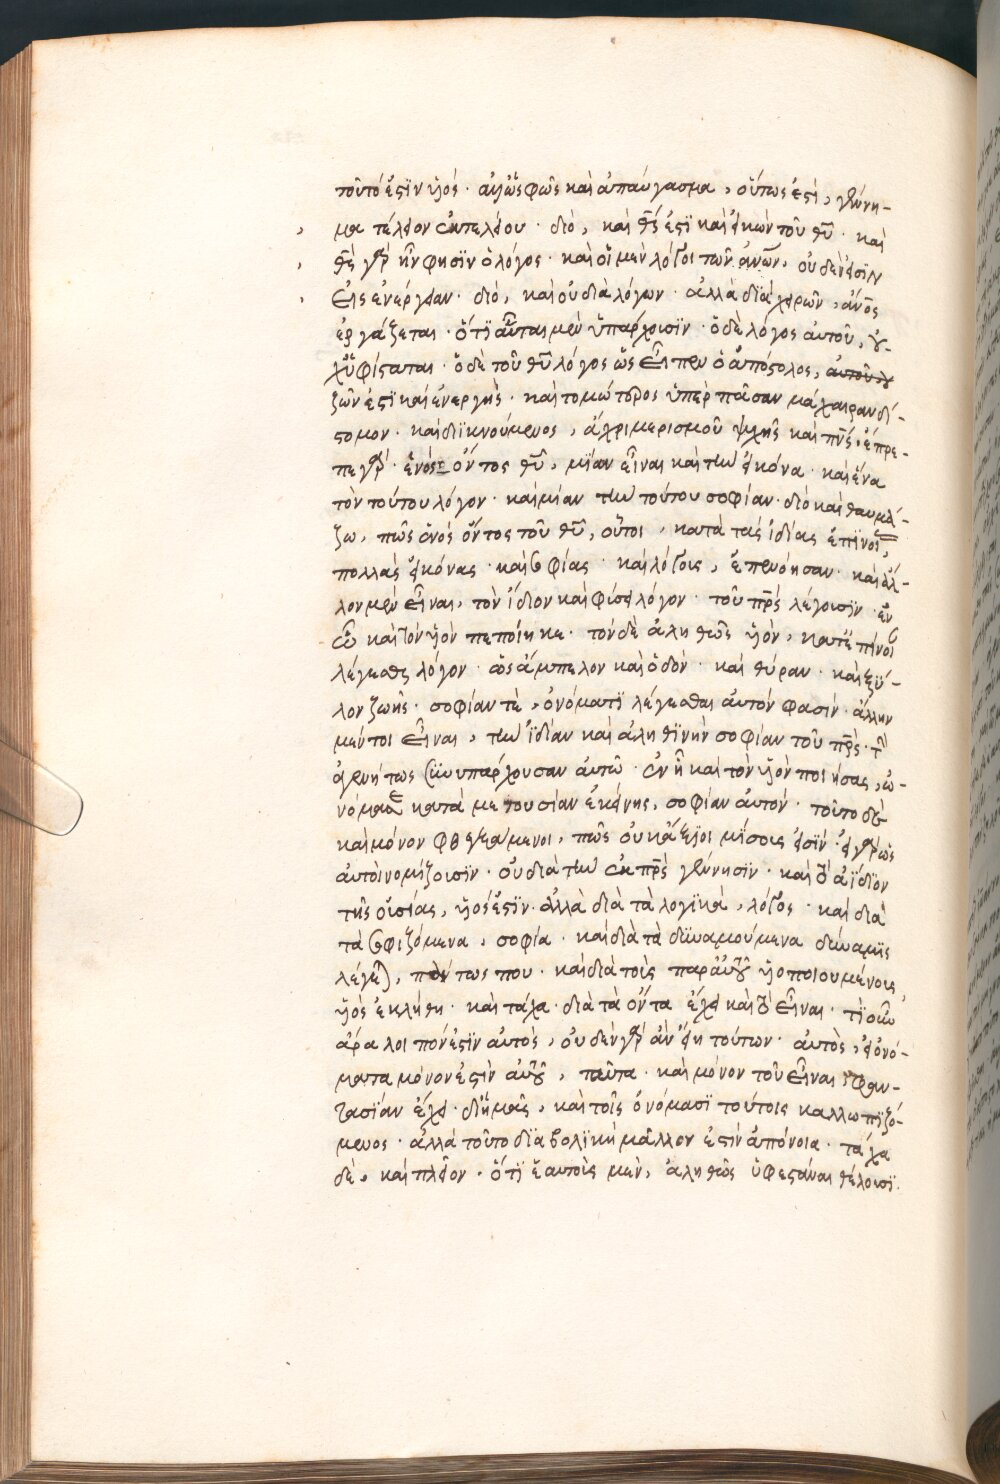 τοῦτό ἐστϊν ὑϊός · ἀλλ' ὡς φῶς καὶ ἀπαύγασμα, οὕτως ἐστὶ, γέννη-
μα τέλειον ἐκ τελείου · διὸ, καὶ θς̅ ἐστϊ καὶ εἰκὼν τοῦ θυ̅ · καὶ
θς̅ γὰρ ἦν φησὶν ὁ λόγος · καὶ οἱ μὲν λόγοι τῶν ἀνων̅, οὐδέν εἰσϊν
εἰς ἐνέργειαν · διὸ, καὶ οὐ διὰ λόγων · ἀλλὰ δϊὰ χειρῶν, ἀνος̅
ἐργάζεται · ὅτϊ αὗται μὲν ὑπάρχουσϊν · ὁ δὲ λόγος αὐτοῦ, οὐ-
χ ὑφίσταται · ὁ δὲ τοῦ θυ̅ λόγος ὡς εἶπεν ὁ ἀπόστολος,
ζῶν ἐστϊ καὶ ἐνεργὴς · καὶ τομώτερος ὑπὲρ πᾶσαν μάχαιραν δί-
στομον · καὶ διϊκνούμενος, ἄχρι μερισμοῦ ψυχῆς καὶ πνς̅ · ἔπρε-
πε γὰρ · ἑνὸς ὄντος θυ̅, μίαν εἶναι καὶ τὴν εἰκόνα · καὶ ἕνα
τὸν τούτου λόγον · καὶ μίαν τὴν τούτου σοφίαν · διὸ καὶ θαυμά-
ζω, πῶς ἑνὸς ὄντος τοῦ θυ̅, οὗτοι, κατὰ τὰς ἰδίας ἐπινοίας,
πολλὰς εἰκόνας · καὶ σοφίας · καὶ λόγους, ἐπενόησαν · καὶ ἄλ-
λον μὲν εἶναι, τὸν ἴδιον καὶ φύσει λόγον · τοῦ πρς̅ λέγουσϊν · ἐν
ᾧ καὶ τὸν ὑϊὸν πεποίηκε · τὸν δὲ ἀληθῶς ὑϊὸν, κατ' ἐπίνοι
λέγεσθαι λόγον · ὡς ἄμπελον καὶ ὁδὸν · καὶ θύραν · καὶ ξύ-
λον ζωῆς · σοφίαν τὲ, ὀνόματϊ λέγεσθαι αὐτόν φασίν · ἄλλην
μέντοι εἶναι, τὴν ἰδίαν καὶ ἀληθϊνὴν σοφίαν τοῦ πρς̅ · τὴν
ἀγεννήτως συνυπάρχουσαν αὐτῶ · ἐν ᾗ καὶ τὸν ὑϊὸν ποιήσας, ὠ-
νόμασε κατὰ μετουσίαν ἐκείνης, σοφίαν αὐτόν · τοῦτο δὲ
καὶ μόνον φθεγξάμενοι, πῶς οὐκ ἄξιοι μίσους εἰσίν · εἰ γὰρ ὡς
αὐτοὶ νομίζουσϊν · οὐ διὰ τὴν ἐκ πρς̅ γέννησϊν · καὶ τὸ ἀΐδϊον
τῆς οὐσίας, ὑϊός ἐστϊν · ἀλλὰ διὰ τὰ λογικὰ, λόγος · καὶ διὰ
τὰ σοφιζόμενα, σοφία · καὶ διὰ τὰ δυναμούμενα δύναμις
λέγεται, πάντως που · καὶ διὰ τοὺς παρ' αὐτοῦ ὑϊοποιουμένους,
ὑϊὸς ἐκλήθη · καὶ τάχα · διὰ τὰ ὄντα ἔχει καὶ τὸ εἶναι · τί οὖν
ἄρα λοιπόν ἐστϊν αὐτὸς, οὐδὲν γὰρ ἂν εἴη τούτων · αὐτὸς, εἰ ὀνό-
ματα μόνον ἐστὶν αὐτοῦ, ταῦτα · καὶ μόνον τοῦ εἶναι φαν-
τασίαν ἔχει · δι' ἡμᾶς, καὶ τοῖς ὀνόμασϊ τούτοις καλλωπϊζό-
μενος · ἀλλὰ τοῦτο δϊαβολϊκὴ μᾶλλον ἐστὶν ἀπόνοια · τάχα
δὲ, καὶ πλεῖον · ὅτϊ ἑαυτοὺς μὲν, ἀληθῶς ὑφεστάναι θέλουσϊ.